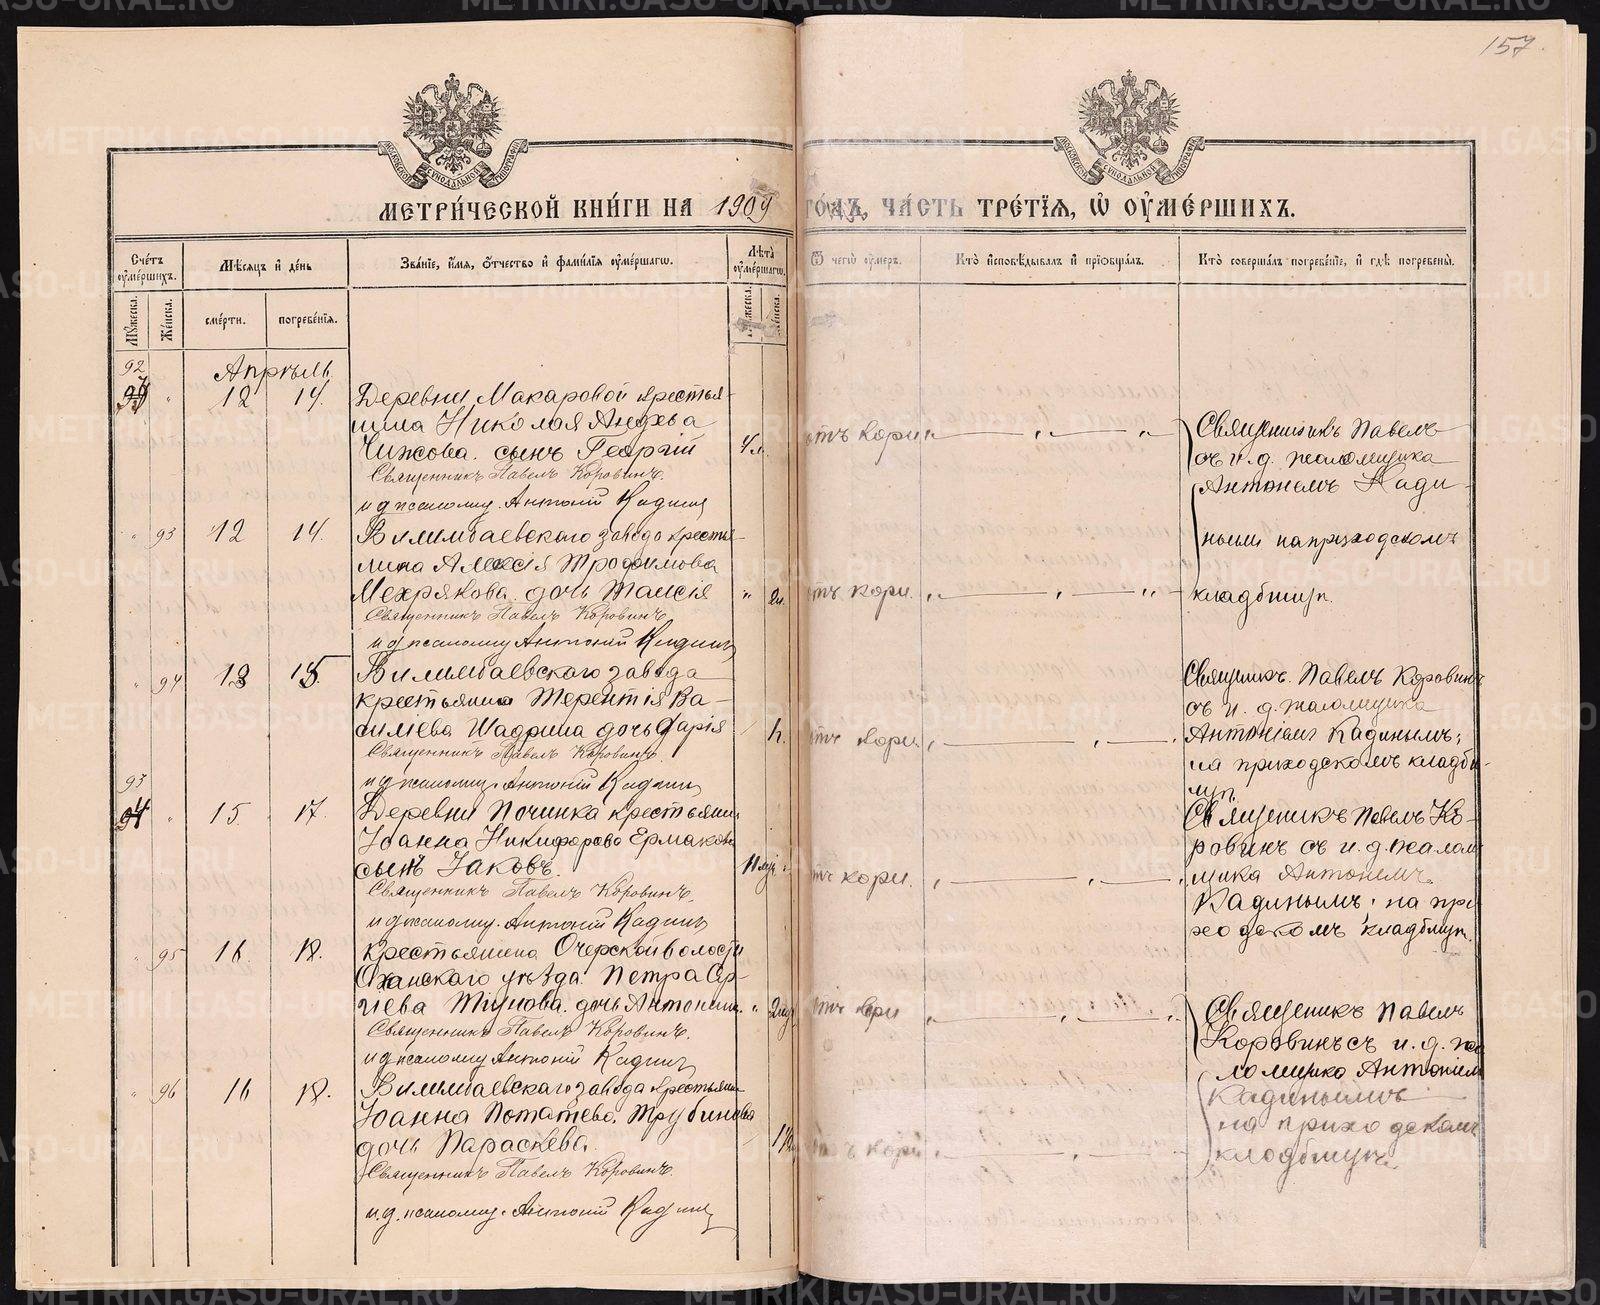 157.
МЕТРИ́ЧЕСКОЙ КНИ́ГИ НА 1909 ГО́ДЪ, ЧА́СТЬ ТРЕ́ТІЯ, Ѡ ОУМЕ́РШИХЪ.
Сче́тъ оуме́ршихъ.
Мѣ́сяцъ и де́нь
Зва́ніе, и́мя, о́тчество и фами́лія оуме́ршагѡ.
Лѣта̀ оуме́ршагѡ.
Ѿ чегѡ̀ оу́меръ.
Кто̀ исповѣ́дывалъ и пріобща́лъ.
Кто̀ соверша́лъ погребе́ніе, и гдѣ̀ погребены̀.
Му́жеска.
Же́нска.
сме́рти.
погребе́нія.
92
Апрѣль
12 14.
Деревни Макаровой крестья-
нина Николая Андрѣева
Чижова. сынъ Георгій
Священникъ Павелъ Коровинъ.
и д псаломщ. Антоній Кадинъ
отъ кори
Священникъ Павелъ
съ и. д. псаломщика
Антоніемъ Кади-
нымъ на приходскомъ
кладбищѣ.
93 12 14.
Билимбаевскаго завода крестья-
нина Алексія Трофимова
Мехрякова. дочь Таисія
Священникъ Павелъ Коровинъ
и д псаломщ Антоній Кадинъ
отъ кори.
94 13 15.
Билимбаевскаго завода
крестьянина Терентія Ва-
силіева Шадрина дочь Дарія
Священникъ Павелъ Коровинъ.
и д псаломщ. Антоній Кадинъ
отъ кори.
Священникъ Павелъ Коровинъ
съ и. д. псаломщика
Антоніемъ Кадинымъ,
на приходскомъ кладби-
щѣ.
93
15 17.
Деревни Починка крестьянина
Іоанна Никифорова Ермакова
сынъ Іаковъ.
Священникъ Павелъ Коровинъ.
и д псаломщ. Антоній Кадинъ
отъ кори.
Священникъ Павелъ Ко-
ровинъ съ и. д. псалом-
щика Антоніемъ
Кадинымъ, на при-
ходскомъ кладбищѣ.
95 16. 18.
Крестьянина Очерской волости
Оханскаго уѣзда. Петра Сер-
гіева Тіунова. дочь Антонина.
Священникъ Павелъ Коровинъ.
и д псаломщ Антоній Кадинъ
отъ кори
Священникъ Павелъ
Коровинъ съ и. д. пса-
ломщика Антоніем
Кадинымъ
на приходскомъ
кладбищѣ.
96 16 18.
Билимбаевскаго завода крестьяни-
Іоанна Потапіева. Трубинова
дочь Параскева.
Священникъ Павелъ Коровинъ.
и. д. псаломщ. Антоній Кадинъ
отъ кори